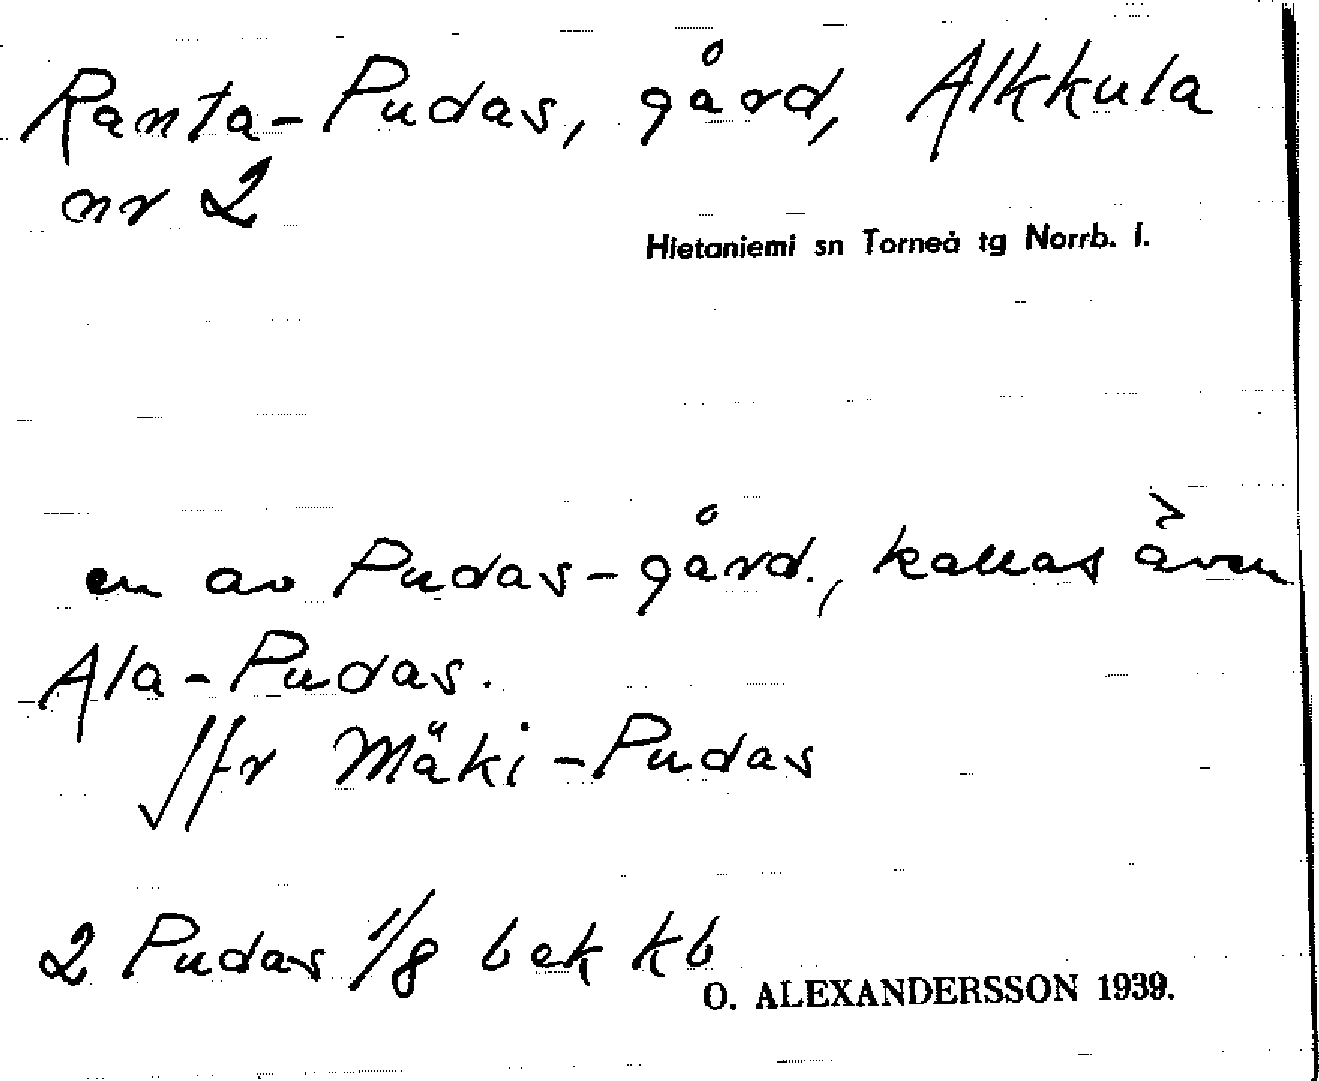 Ranta-Pudas, gård, Alkkula
nr 2
Hietaniemi sn Torneå tg Norrb. l.
en av Pudas-gård., kallas även
Ala-Pudas.
Jfr Mäki-Pudas
2 Pudas 1/8 bek kb
O. ALEXANDERSSON 1939.